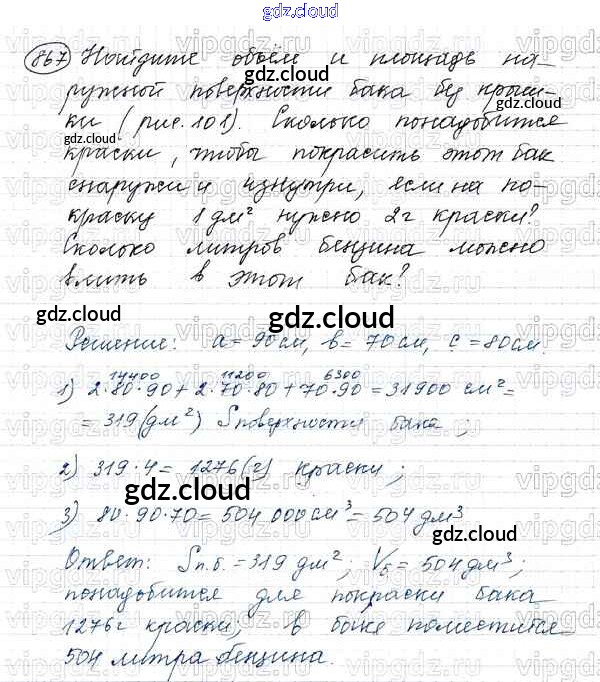 gdz.cloud
867 Найдите объём и площадь на-
gdz.cloud
ружной поверхности бака без крыш-
ки (рис. 101). Сколько понадобится
gdz.cloud
gdz.cloud
краски, чтобы покрасить этот бак
снаружи и изнутри, если на по-
краску 1 дм² нужно 2 г краски?
Сколько литров бензина можно
влить в этот бак?
gdz.cloud
gdz.cloud
gdz.cloud
Решение: a = 90 см, b = 70 см, c = 80 см.
14400 11200 6300
1) 2·80·90 + 2·70·80 + 70·90 = 31900 см² =
= 319 (дм²) Sповерхности бака;
2) 319·4 = 1276 (г) краски;
gdz.cloud
3) 80·90·70 = 504 000 см³ = 504 дм³
gdz.cloud
Ответ: Sп.б. = 319 дм²; Vб = 504 дм³;
понадобится для покраски бака
1276г краски; в баке поместится
504 литра бензина.